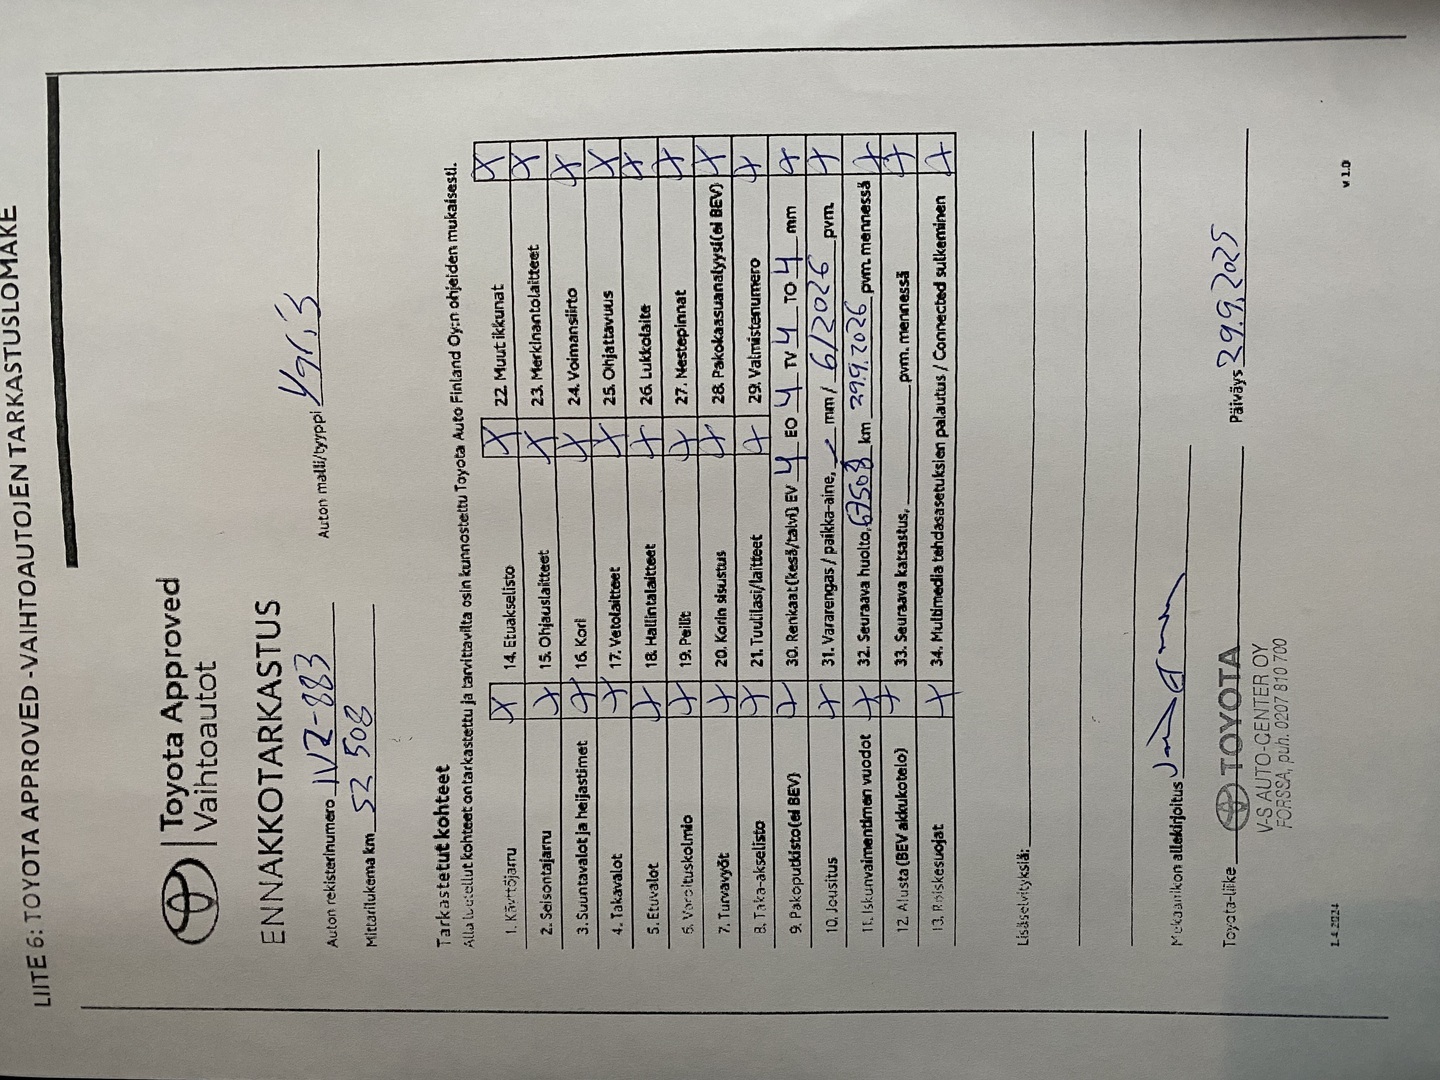 LIITE 6: TOYOTA APPROVED -VAIHTOAUTOJEN TARKASTUSLOMAKE
Toyota Approved
Vaihtoautot
ENNAKKOTARKASTUS
Auton rekisterinumero IVZ-883 Auton malli/tyyppi Yaris
Mittarilukema km 52 508
Tarkastetut kohteet
Alla luetellut kohteet on tarkastettu ja tarvittavilta osin kunnostettu Toyota Auto Finland Oy:n ohjeiden mukaisesti.
1. Käyttöjarru X 14. Etuakselisto X 22. Muut ikkunat X
2. Seisontajarru X 15. Ohjauslaitteet X 23. Merkinantolaitteet X
3. Suuntavalot ja heijastimet X 16. Kori X 24. Voimansiirto X
4. Takavalot X 17. Vetolaitteet X 25. Ohjattavuus X
5. Etuvalot X 18. Hallintalaitteet X 26. Lukkolaite X
6. Varoituskolmio X 19. Peilit X 27. Nestepinnat X
7. Turvavyöt X 20. Korin sisustus X 28. Pakokaasuanalyysi (ei BEV) X
8. Taka-akselisto X 21. Tuulilasi/laitteet X 29. Valmistenumero X
9. Pakoputkisto (ei BEV) X 30. Renkaat (kesä/talvi) EV 4 EO 4 TV 4 TO 4 mm X
10. Jousitus X 31. Vararengas / paikka-aine, mm / 6/2026 pvm. X
11. Iskunvaimentimen vuodot X 32. Seuraava huolto, 67508 km 29.9.2026 pvm. mennessä X
12. Alusta (BEV akkukotelo) X 33. Seuraava katsastus, pvm. mennessä X
13. Roiskesuojat X 34. Multimedia tehdasasetuksien palautus / Connected sulkeminen X
Lisäselvityksiä:
Mekaanikon allekirjoitus
Toyota-liike TOYOTA Päiväys 29.9.2025
V-S AUTO-CENTER OY
FORSSA, puh. 0207 810 700
1.4.2024 v 1.0